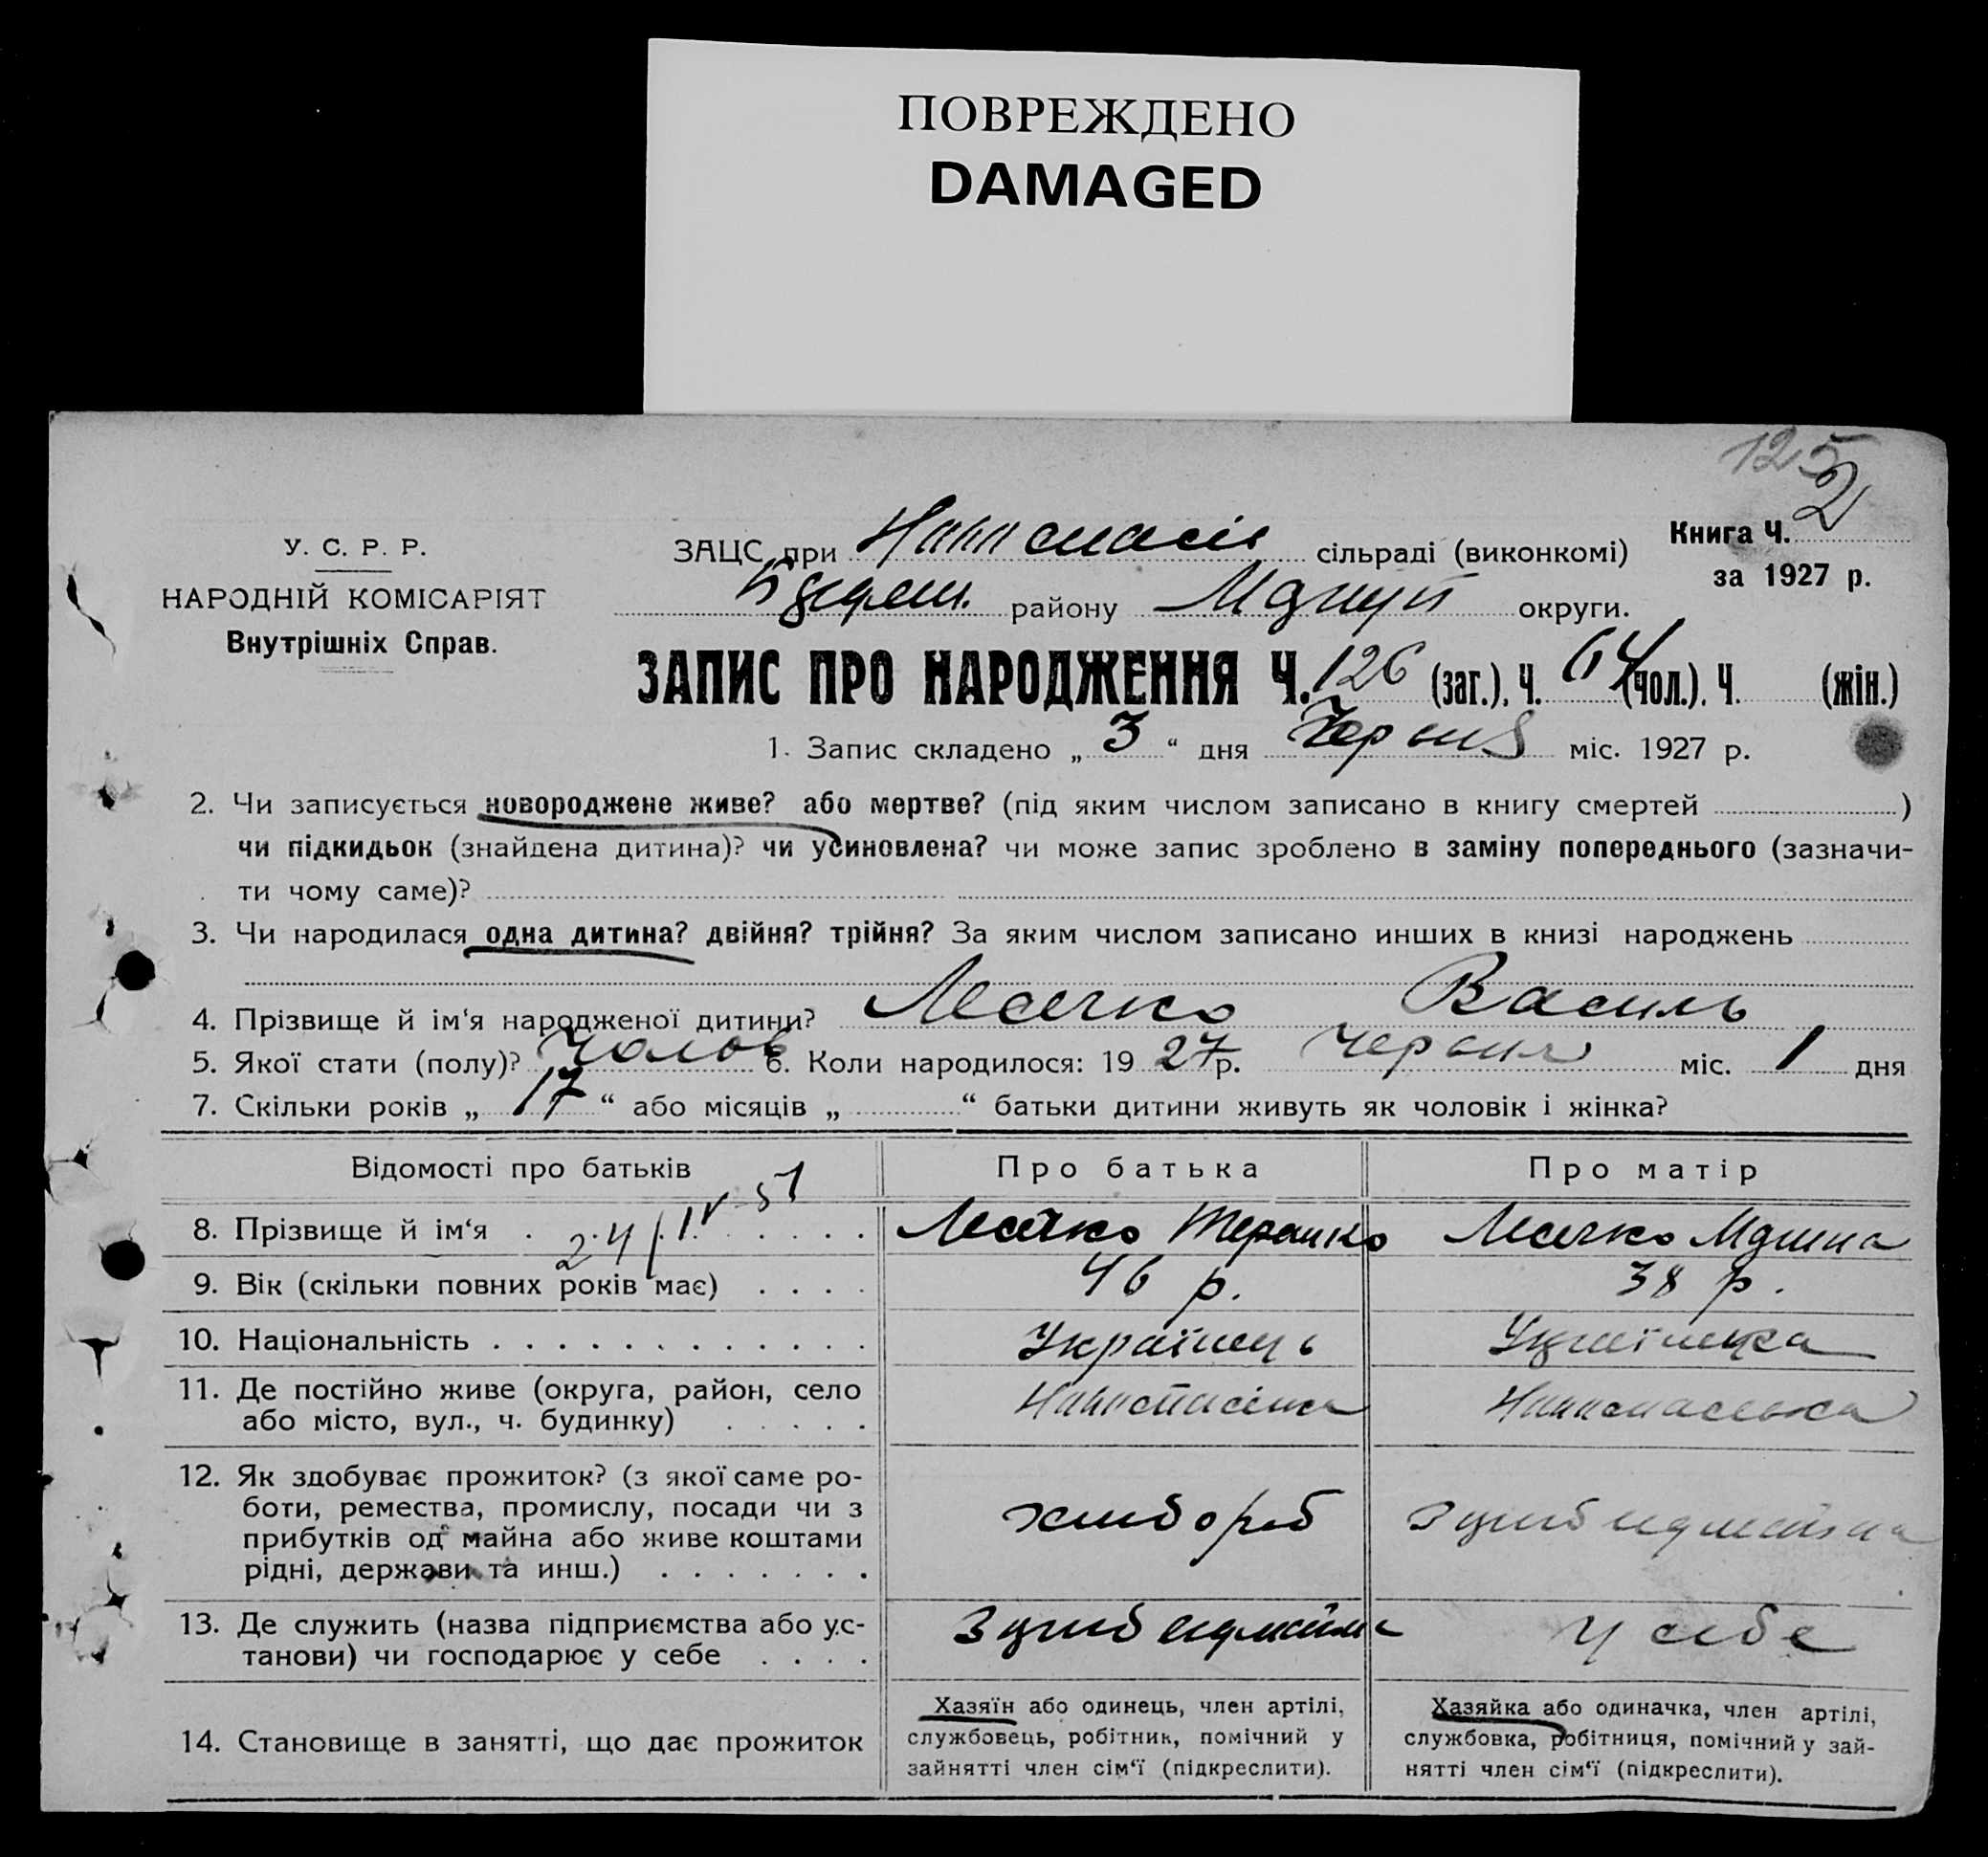 ПОВРЕЖДЕНО
DAMAGED
125
У. С. Р. Р.
НАРОДНІЙ КОМІСАРІЯТ
Внутрішніх Справ.
ЗАЦС при сільраді (виконкомі)
Книга Ч. 2
за 1927 р.
району округи.
ЗАПИС ПРО НАРОДЖЕННЯ Ч. 126 (заг.), Ч. 64 (чол.), Ч. (жін.)
1. Запис складено „ 3 “ дня Червня міс. 1927 р.
2. Чи записується новороджене живе? або мертве? (під яким числом записано в книгу смертей )
чи підкидьок (знайдена дитина)? чи усиновлена? чи може запис зроблено в заміну попереднього (зазначи-
ти чому саме)?
3. Чи народилася одна дитина? двійня? трійня? За яким числом записано инших в книзі народжень
4. Прізвище й ім'я народженої дитини? Василь
5. Якої стати (полу)? Чолов 6. Коли народилося: 19 27 р. Червня міс. 1 дня
7. Скільки років „ 17 “ або місяців „ “ батьки дитини живуть як чоловік і жінка?
Відомості про батьків Про батька Про матір
24/IV 51
8. Прізвище й ім'я
9. Вік (скільки повних років має) 46 р. 38 р.
10. Національність Українець Українка
11. Де постійно живе (округа, район, село
або місто, вул., ч. будинку)
12. Як здобуває прожиток? (з якої саме ро-
боти, ремества, промислу, посади чи з
прибутків од майна або живе коштами
рідні, держави та инш.)
хлібороб
13. Де служить (назва підприємства або ус-
танови) чи господарює у себе
у себе
14. Становище в занятті, що дає прожиток
Хазяїн або одинець, член артілі,
службовець, робітник, помічний у
зайнятті член сім'ї (підкреслити).
Хазяйка або одиначка, член артілі,
службовка, робітниця, помічний у зай-
нятті член сім'ї (підкреслити).